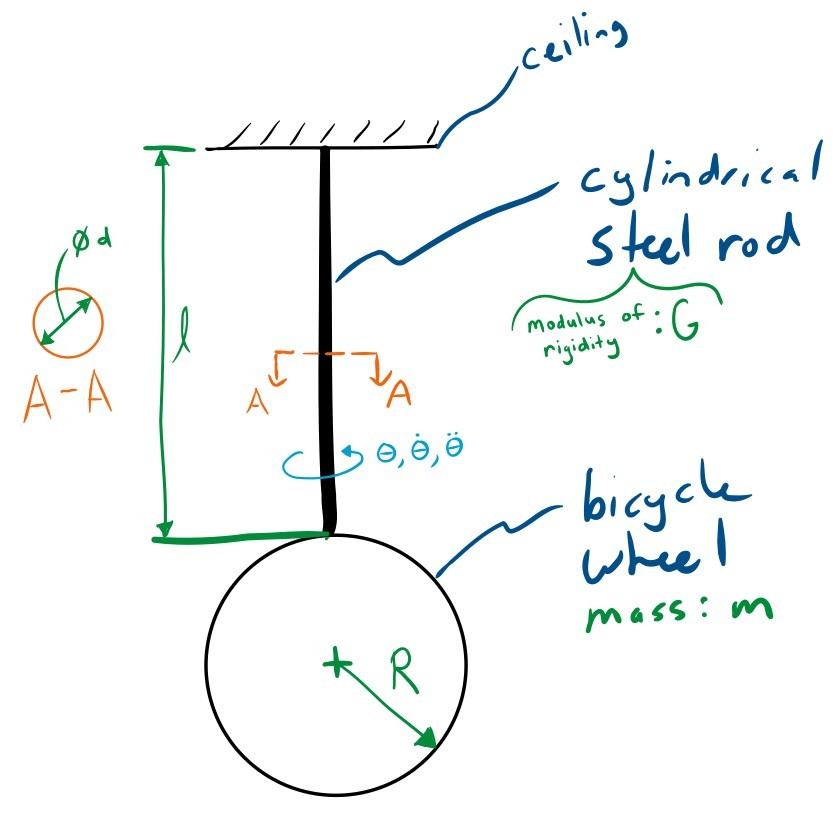 ceiling
cylindrical
steel rod
modulus of
rigidity
: G
Ød
l
A-A
A
A
θ, θ̇, θ̈
bicycle
wheel
mass: m
R